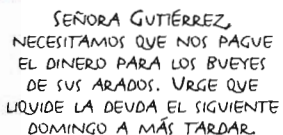 SEÑORA GUTIÉRREZ,
NECESITAMOS QUE NOS PAGUE
EL DINERO PARA LOS BUEYES
DE SUS ARADOS. URGE QUE
LIQUIDE LA DEUDA EL SIGUIENTE
DOMINGO A MÁS TARDAR.